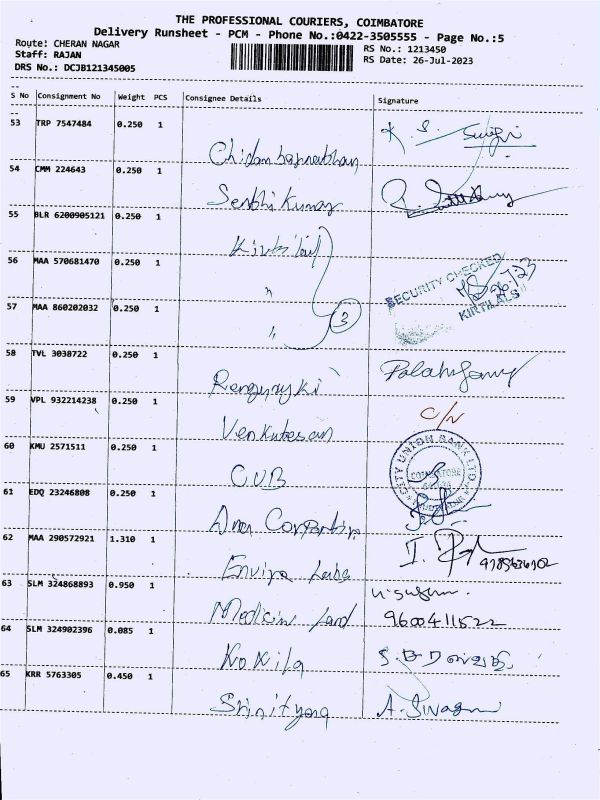 THE PROFESSIONAL COURIERS, COIMBATORE
Delivery Runsheet - PCM - Phone No.:0422-3505555 - Page No.:5
Route: CHERAN NAGAR
Staff: RAJAN
DRS No.: DCJB121345005
RS No.: 1213450
RS Date: 26-Jul-2023
S No Consignment No Weight PCS Consignee Details Signature
53 TRP 7547484 0.250 1
54 CMM 224643 0.250 1 Senthi Kumar
55 BLR 6200905121 0.250 1
56 MAA 570681470 0.250 1 "
SECURITY CHECKED
KIRTILALS
57 MAA 860202032 0.250 1 " 3
58 TVL 3038722 0.250 1
59 VPL 932214238 0.250 1 Venkatesan
60 KMU 2571511 0.250 1 CUB
CITY UNION BANK LTD.
COIMBATORE
61 EDQ 23246808 0.250 1
62 MAA 290572921 1.310 1 Envira Labs
63 SLM 324868893 0.950 1 Medicin Land 9600411522
64 SLM 324902396 0.085 1 Kokila
65 KRR 5763305 0.450 1